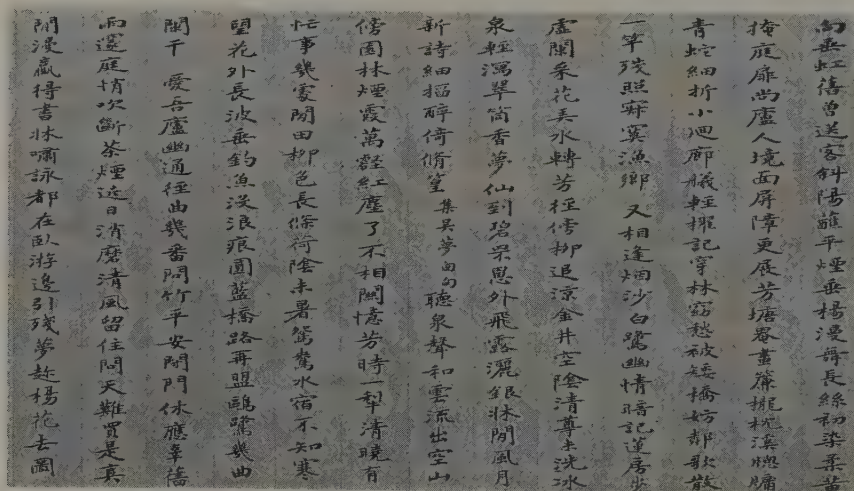 向垂虹舊曾送客斜陽蘸平煙垂楊漫舞長絲初染柔黃
掩庭扉尚廬人境面屏障更展芳塘罨畫簾櫳枕溪牕牖
青蛇細折小迴廊艤輕櫂記穿林窈愁被矮橋妨鄰歌散
一竿殘照寂寞漁鄉 又相逢烟沙白鷺幽情嬾記蓮房步
虛闌采花弄水轉芳徑傍柳追涼金井空陰清尊未洗冰
泉輕瀉翠筩香夢仙到碧罘罳外飛露灑銀牀閒風月
新詩細搯醉倚脩篁 集吳夢窗句 聽泉聲和雲流出空山
傍園林煙霞萬壑紅塵了不相關憶芳時一犁清曉有
忙事幾處閒田柳色長條荷陰未暑鴛鴦水宿不知寒
望花外長波垂釣魚沒浪痕圓藍橋路再盟鷗鷺幾曲
闌干 愛吾廬幽通徑曲幾番問竹平安閉門休應辜舊
雨邃庭悄吹斷茶煙遲日消磨清風留住問天難買是真
閒漫贏得書牀嘯詠都在臥游邊引殘夢趁楊花去圖